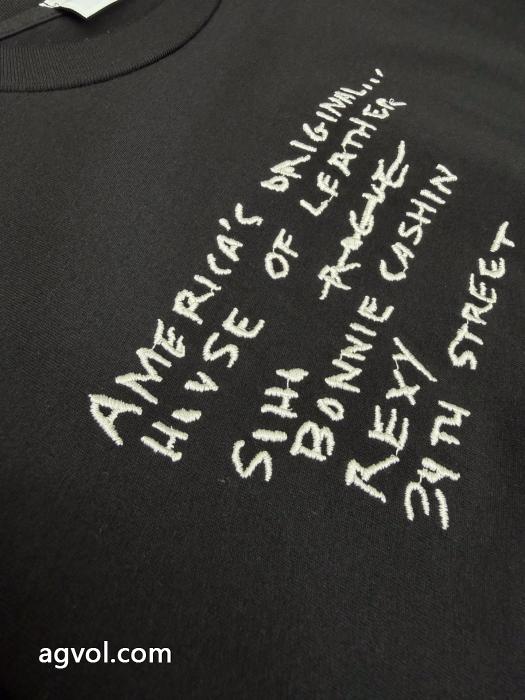 AMERICA'S ORIGINAL...
HOUSE OF LEATHER
SIHI ROGUE
BONNIE CASHIN
REXY
34TH STREET
agvol.com